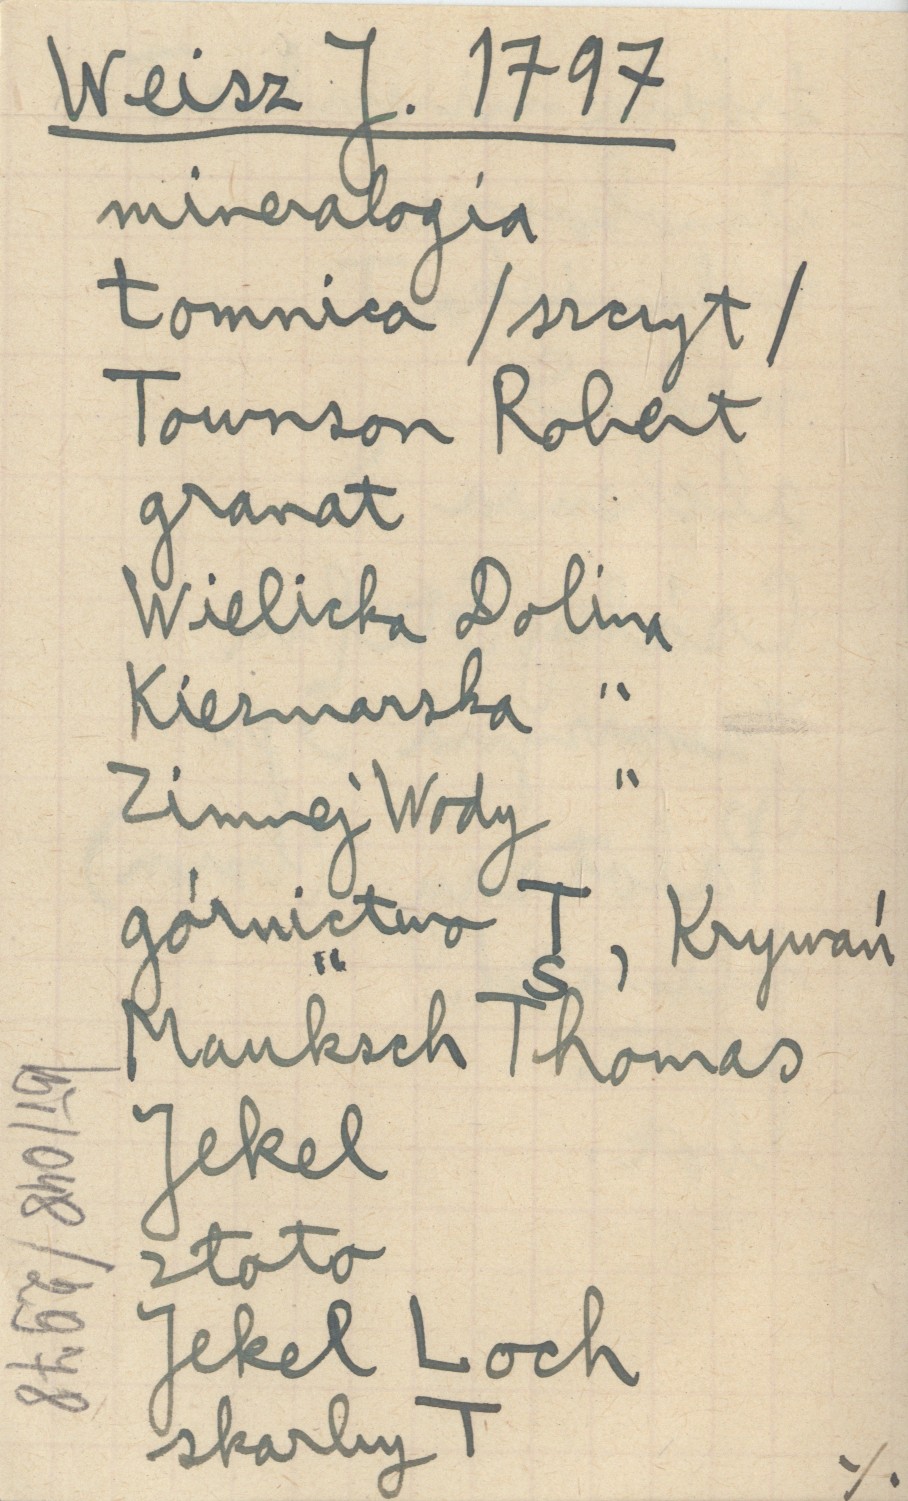 Weisz J. 1797
mineralogia
Łomnica /szczyt/
Townson Robert
granat
Wielicka Dolina
Kiezmarska "
Zimnej Wody "
górnictwo T, Krywań
" S
Mauksch Thomas
Jekel
złoto
Jekel Loch
skarby T
·/.